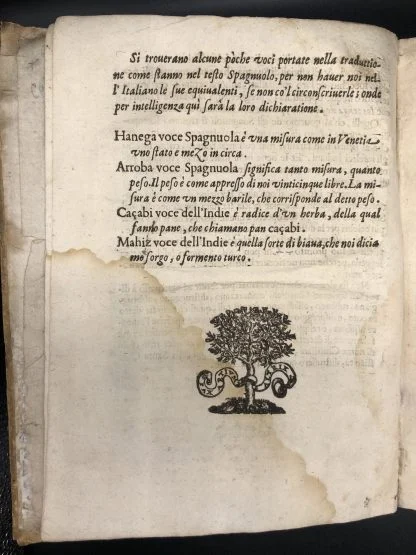 Si trouerano alcune pòche voci portate nella traduttio-
ne come stanno nel testo Spagnuolo, per non hauer noi nel-
l'Italiano le sue equiualenti, se non co'l circonscriuerle; onde
per intelligenza quì sarà la loro dichiaratione.
Hanega voce Spagnuola è vna misura come in Venetia
vno staro e mezo in circa.
Arroba voce Spagnuola significa tanto misura, quanto
peso. Il peso è come appresso di noi vinticinque libre. La mi-
sura è come vn mezzo barile, che corrisponde al detto peso.
Caçabi voce dell'Indie è radice d'vn herba, della qual
fanno pane, che chiamano pan caçabi.
Mahiz voce dell'Indie è quella sorte di biaua, che noi dicia
mo sorgo, o formento turco.